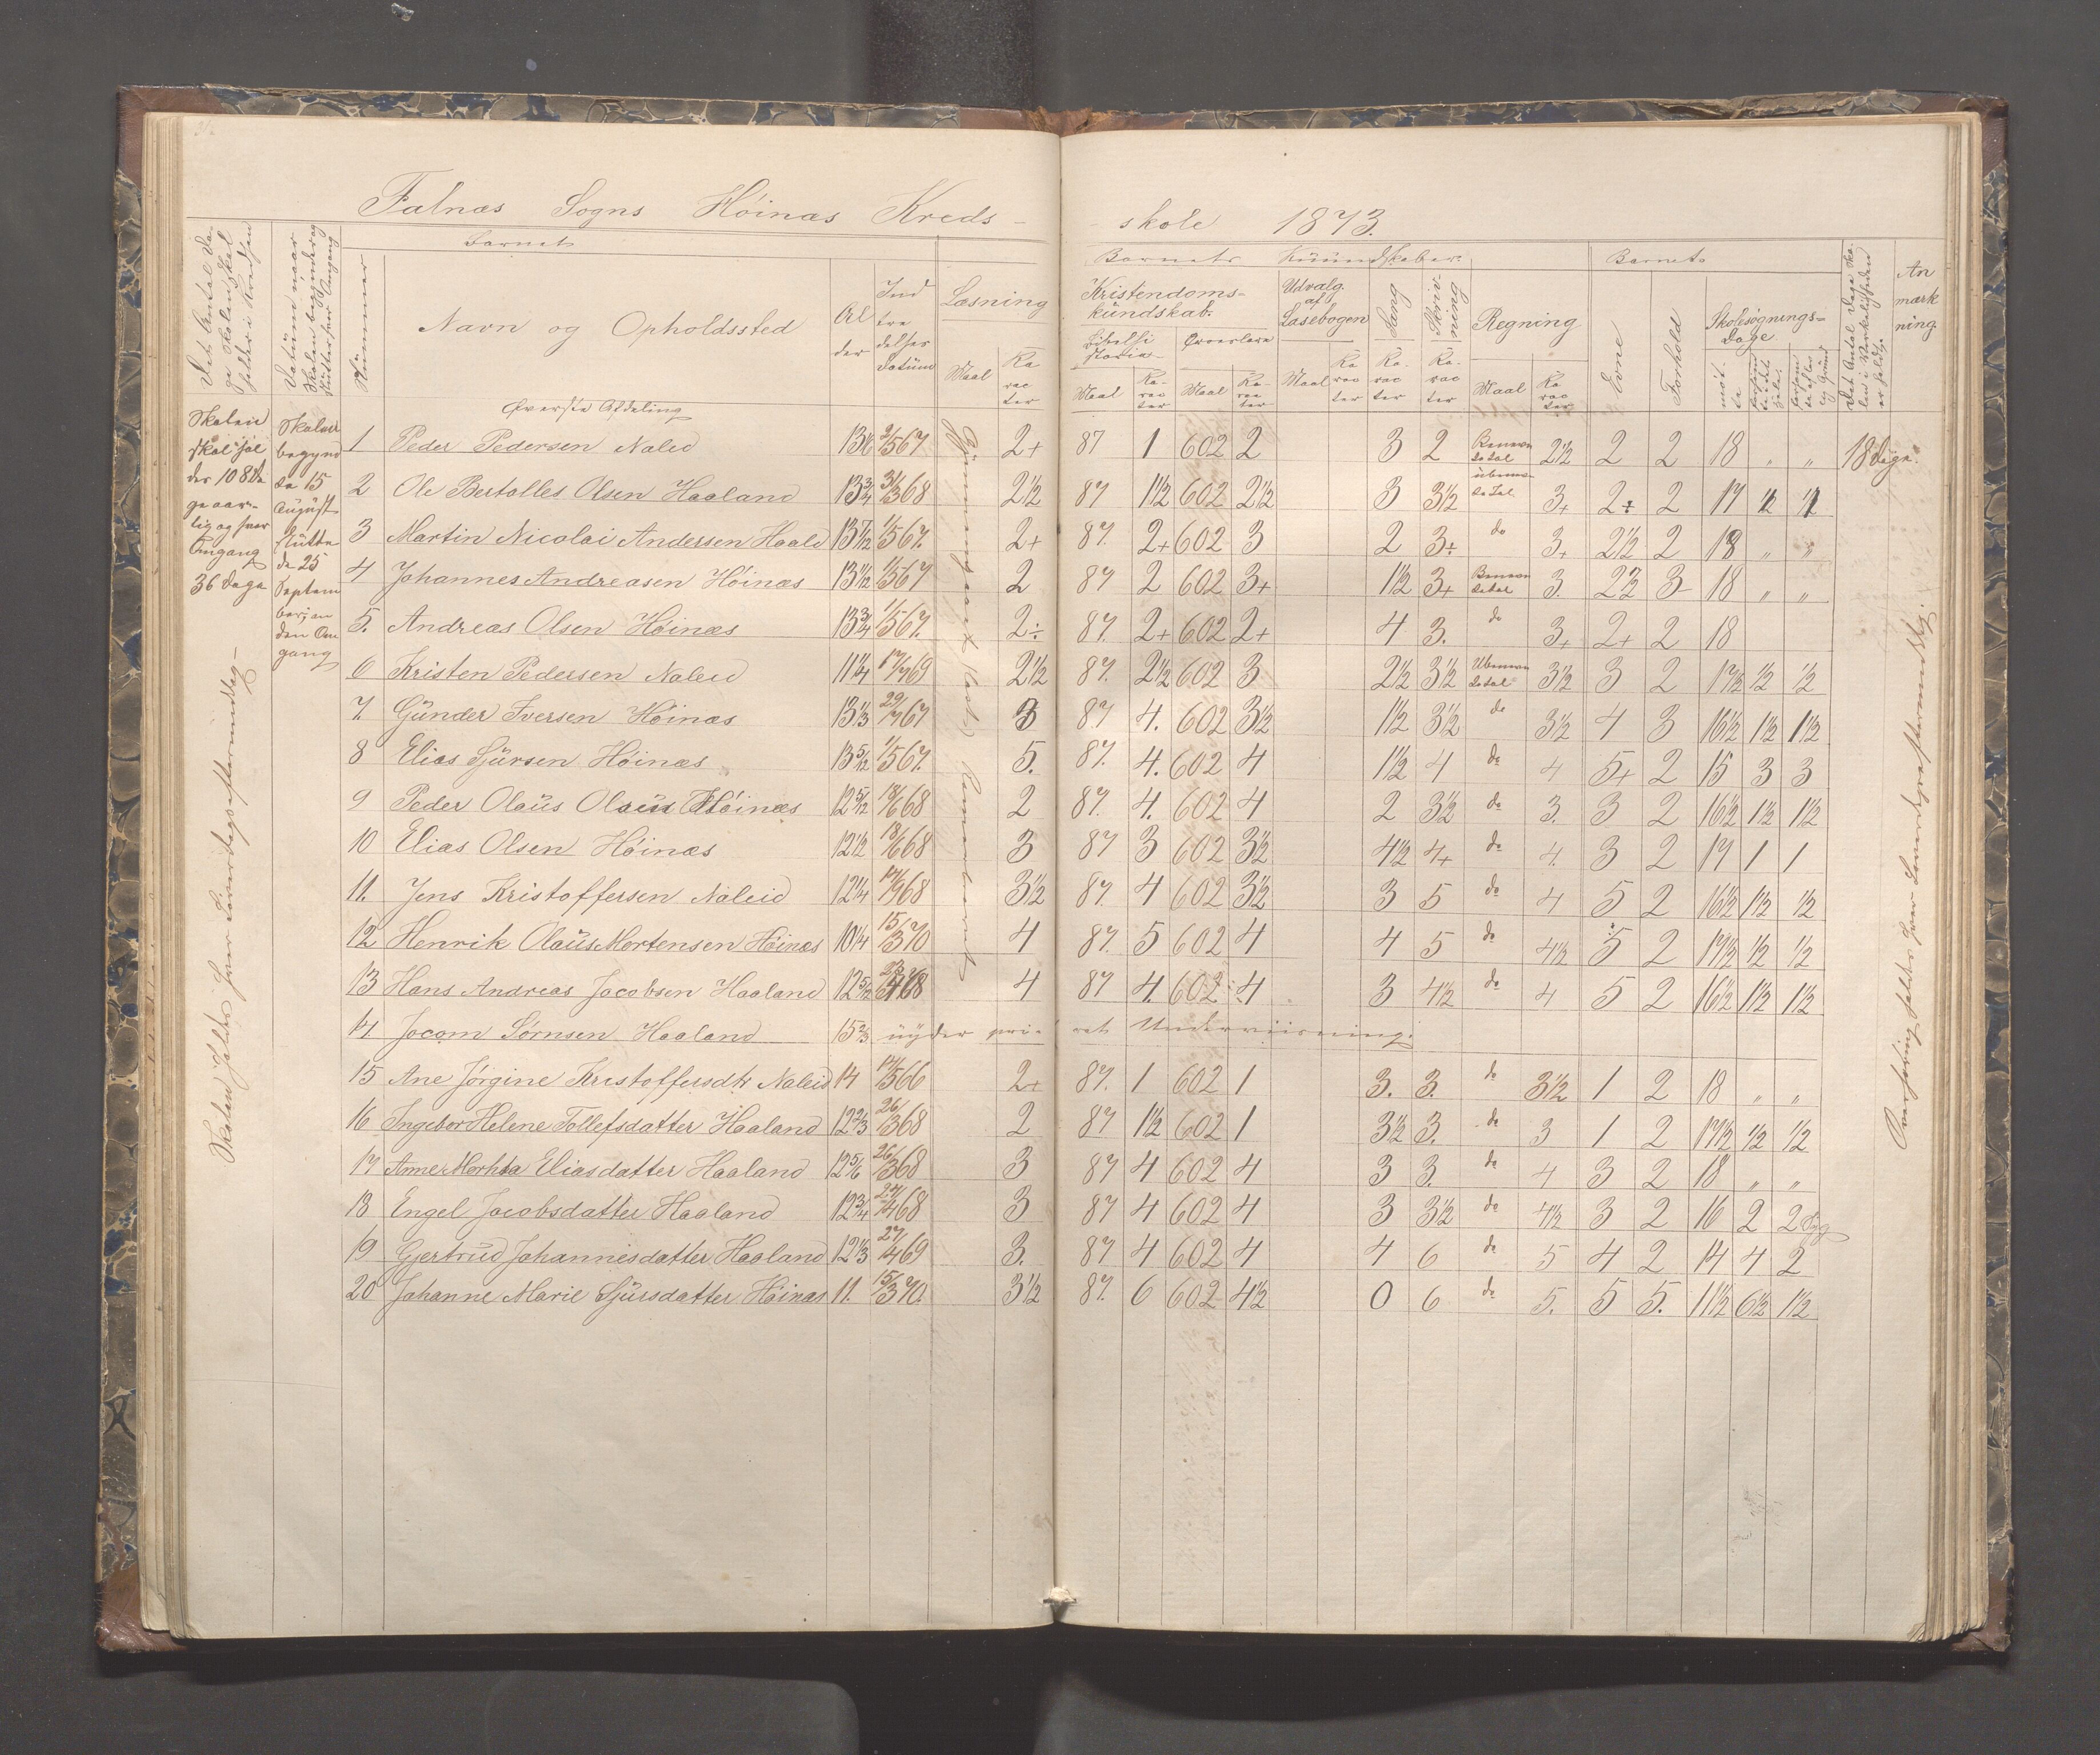 Falnæs Sogns Høinæs Kreds-
skole 1873.
Det Antal Dage Skolen skal holdes i Kredsen
Datüm naar Skolen begynder og slütter hver Omgang
Nümmer
Barnets
Navn og Opholdssted
Alder
Indtrædelses datüm
Læsning
Maal
Karacter
Barnets Kuundskaber.
Kristendoms-
kündskab.
Bibelhistorie
Troeslære
Maal Karacter Maal Karacter
Udvalg af Læsebogen
Maal Karacter
Sang
Karacter
Skrivning
Karacter
Regning
Maal Karacter
Barnets
Evne
Forhold
Skolesøgnings-
Dage
mødte
forsømte i det hele
forsømte af lovlig Grund
Det Antal Dage Skolen i Virkeligheden er holdt
Anmærkning.
Øverste Afdeling
Skolen
skal hol
des 108 Da
ge aar-
lig og hver
Omgang
36 Dage
Skolen
begynd
te 15
August
slütte
de 25
Septem
ber; an
den Om
gang
1 Peder Pedersen Naleid 13 1/6 2/5 67. 2+ 87 1 602 2 3 2 Benævn te tal 2 1/2 2 2 18 " " 18 Dage.
2 Ole Bertolles Olsen Haaland 13 3/4 31/3 68 2 1/2 87 1 1/2 602 2 1/2 3 3 1/2 übenævn te Tal 3+ 2+ 2 17 1 1
3 Martin Nicolai Andersen Haald 13 7/12 1/5 67. 2+ 87. 2+ 602 3 2 3+ do 3+ 2 1/2 2 18 " "
4 Johannes Andreasen Høinæs 13 1/12 1/5 67 2 87 2 602 3+ 1 1/2 3+ Benævn te tal 3. 2 2/3 3 18 " "
5. Andreas Olsen Høinæs 13 3/4 1/5 67. 2÷ 87. 2+ 602 2+ 4 3. do 3+ 2+ 2 18
6 Kristen Pedersen Naleid 11 1/4 17/7 69 2 1/2 87. 2 1/2 602 3 2 1/2 3 1/2 Ubenævn te tal 3 1/2 3 2 17 1/2 1/2 1/2
7. Günder Iversen Høinæs 13 1/3 29/7 67 3 87 4. 602 3 1/2 1 1/2 3 1/2 do 3 1/2 4 3 16 1/2 1 1/2 1 1/2
8 Elias Sjürsen Høinæs 13 5/12 1/5 67. 5. 87. 4. 602 4 1 1/2 4 do 4 5+ 2 15 3 3
9 Peder Olaüs Olsen Høinæs 12 5/12 18/6 68 2 87. 4. 602 4 2 3 1/2 do 3. 3 2 16 1/2 1 1/2 1 1/2
10 Elias Olsen Høinæs 12 1/2 18/6 68 3 87 3 602 3 1/2 4 1/2 4+ do 4. 3 2 17 1 1
11. Jens Kristoffersen Naleid 12 1/4 14/9 68 3 1/2 87 4 602 3 1/2 3 5 do 4 5 2 16 1/2 1 1/2 1/2
12 Henrik Olaüs Mortensen Høinæs 10 1/4 15/3 70 4 87. 5 602 4 4 5 do 4 1/2 5 2 17 1/2 1/2 1/2
13 Hans Andreas Jacobsen Haaland 12 5/12 68 4 87 4. 602 4 3 4 1/2 do 4 5 2 16 1/2 1 1/2 1 1/2
14 Jocom Sørnsen Haaland 15 2/3 nyder privat Underviisning.
15 Ane Jørgine Kristoffersdtr Naleid 14 14/5 66 2+ 87. 1 602 1 3. 3. do 3 1/2 1 2 18 " "
16 Ingebor Helene Tollefsdatter Haaland 12 2/3 26/3 68 2 87 1 1/2 602 1 3 1/2 3. do 3 1 2 17 1/2 1/2 1/2
17 Ane Eliasdatter Haaland 12 5/6 26/3 68 3 87 4 602 4 3 3. do 4 3 2 18 " "
18 Engel Jacobsdatter Haaland 12 3/4 24/4 68 3 87 4 602 4 3 3 1/2 do 4 1/2 3 2 16 2 2 Syg
19 Gjertrüd Johannesdatter Haaland 12 1/3 27/4 69 3. 87 4 602 4 4 6 do 5 4 2 14 4 2
20 Johanne Marie Sjürsdatter Høinæs 11. 15/3 70. 3 1/2 87. 6 602 4 1/2 0 6 do 5. 5 5. 11 1/2 6 1/2 1 1/2